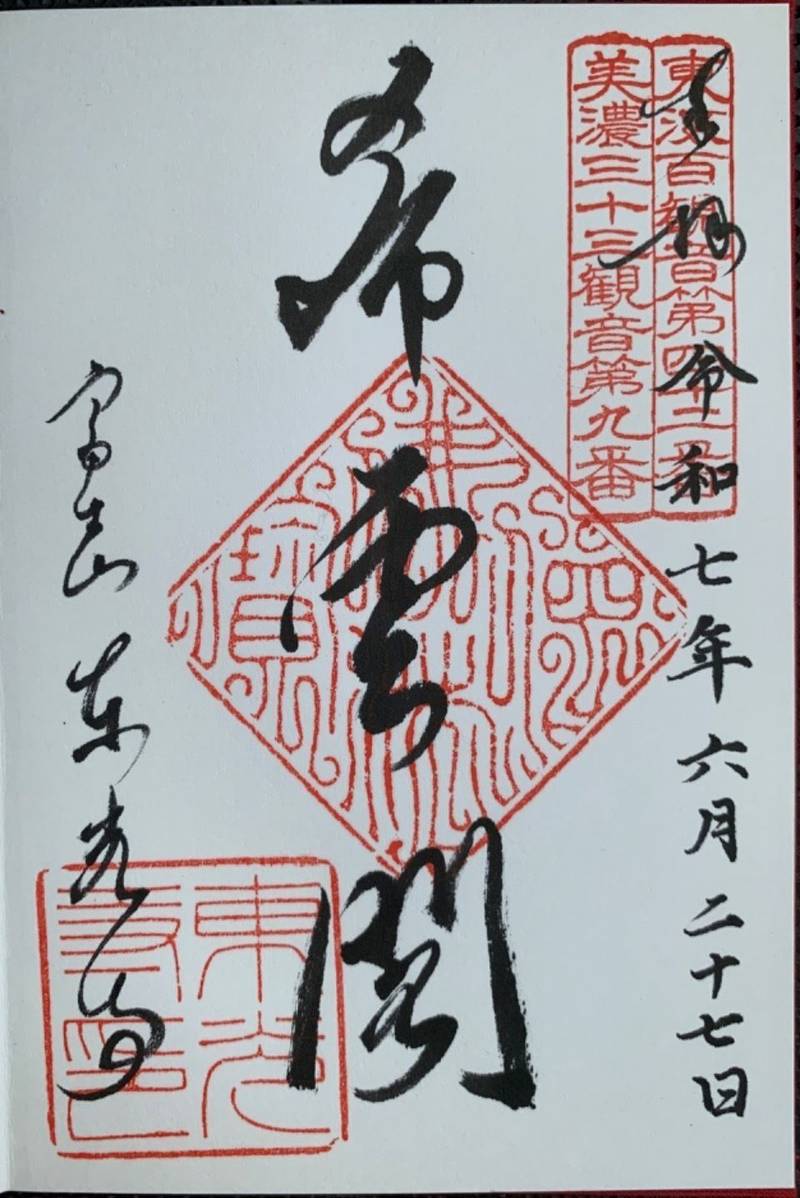 奉拝 令和七年六月二十七日
東海百観音第四十二番
美濃三十三観音第九番
希雲閣
富士山 東光寺
東光
寺印